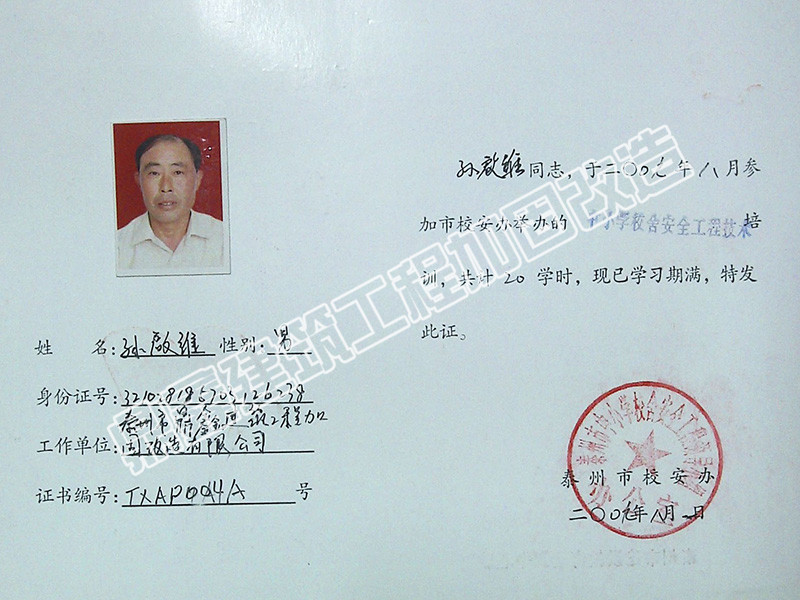 孙啟维同志，于二〇〇九年八月参
加市校安办举办的 中小学校舍安全工程技术培
训，共计20学时，现已学习期满，特发
此证。
姓 名：孙啟维 性别：男
身份证号：
泰州市鼎鑫建筑工程加
工作单位：固改造有限公司
证书编号：TXAP004A 号
泰州市校安办
二〇〇九年八月一日
建筑工程加固改造